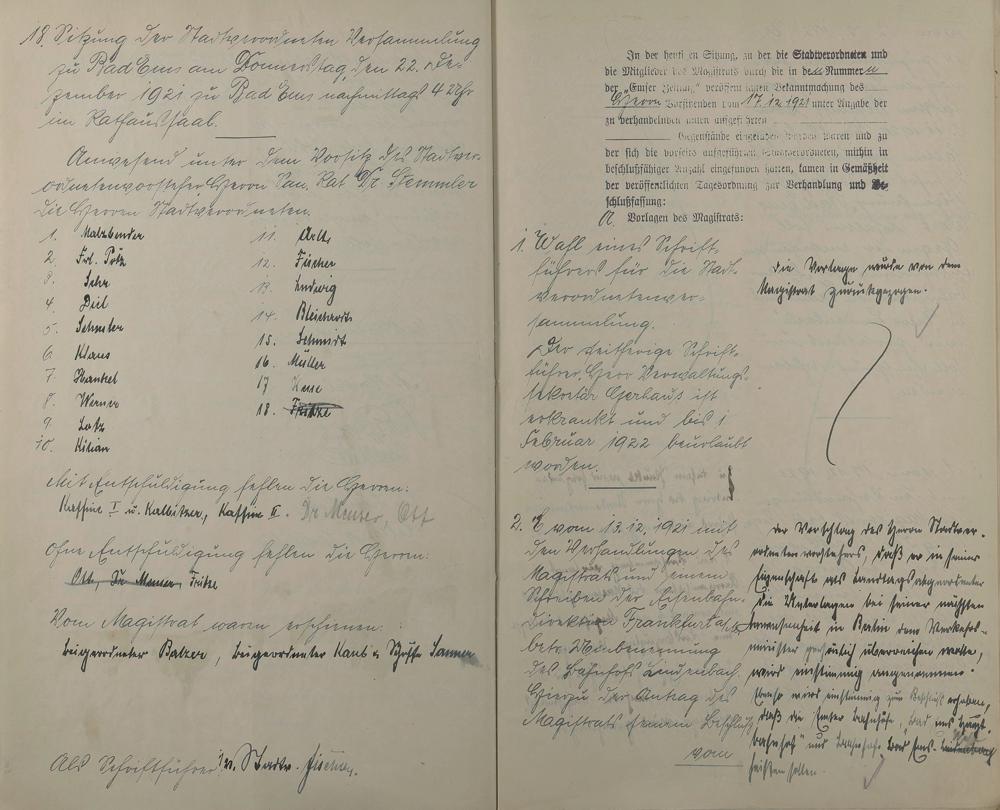 18. Sitzung der Stadtverordneten Versammlung
zu Bad Ems am Donnerstag, den 22. De-
zember 1921 zu Bad Ems nachmittags 4 Uhr
im Rathaussaal.
Anwesend unter dem Vorsitz des Stadtver-
ordnetenvorstehers Herrn San. Rat Dr. Stemmler
die Herren Stadtverordneten.
1. Malzbender
2. Frl. Pötz
3.
4. Deil
5. Schuster
6. Klaus
7.
8. Werner
9. Lotz
10. Kilian
11.
12. Fischer
13. Ludwig
14.
15. Schmidt
16. Müller
17
18. Fritze
Mit Entschuldigung fehlen die Herren:
Kaffine I u. Kalbitzer, Kaffine II. Dr. Meuser, Ott
Ohne Entschuldigung fehlen die Herren:
Ott, Dr. Meuser, Fritze
Vom Magistrat waren erschienen:
Beigeordneter Balzer, Beigeordneter Kaul u. Schöffe
Als Schriftführer: i.V. Stadtv. Fischer.
In der heutigen Sitzung, zu der die Stadtverordneten und
die Mitglieder des Magistrats durch die in der Nummer
der „Emser Zeitung" veröffentlichten Bekanntmachung des
Herrn Vorsitzenden vom 17.12.1921 unter Angabe der
zu verhandelnden unten aufgeführten
Gegenstände eingeladen worden waren und zu
der sich die vorseits aufgeführten Stadtverordneten, mithin in
beschlußfähiger Anzahl eingefunden hatten, kamen in Gemäßheit
der veröffentlichten Tagesordnung zur Verhandlung und Be-
schlußfassung:
A. Vorlagen des Magistrats:
1. Wahl eines Schrift-
führers für die Stadt-
verordnetenver-
sammlung.
Der seitherige Schrift-
führer, Herr Verwaltungs-
sekretär Gerhaus ist
erkrankt und bis 1
Februar 1922 beurlaubt
worden.
Die Vorlage wurde von dem
Magistrat zurückgezogen.
2. E vom 13.12.1921 mit
den Verhandlungen des
Magistrats und einem
Schreiben der Eisenbahn-
direktion Frankfurt a/M.
betr. Umbenennung
des Bahnhofs Lindenbach.
Hierzu der Antrag des
Magistrats seinem Beschluß
vom
Der Vorschlag des Herrn Stadtver-
ordnetenvorstehers, daß er in seiner
Eigenschaft als Landtagsabgeordneter
die Unterlagen bei seiner nächsten
Anwesenheit in Berlin dem Verkehrs-
minister persönlich überreichen wolle,
wird einstimmig angenommen.
Ebenso wird einstimmig zum Beschluß erhoben,
daß die Emser Bahnhöfe „Bad Ems Haupt-
bahnhof" und Bahnhof Bad Ems-
heißen sollen.